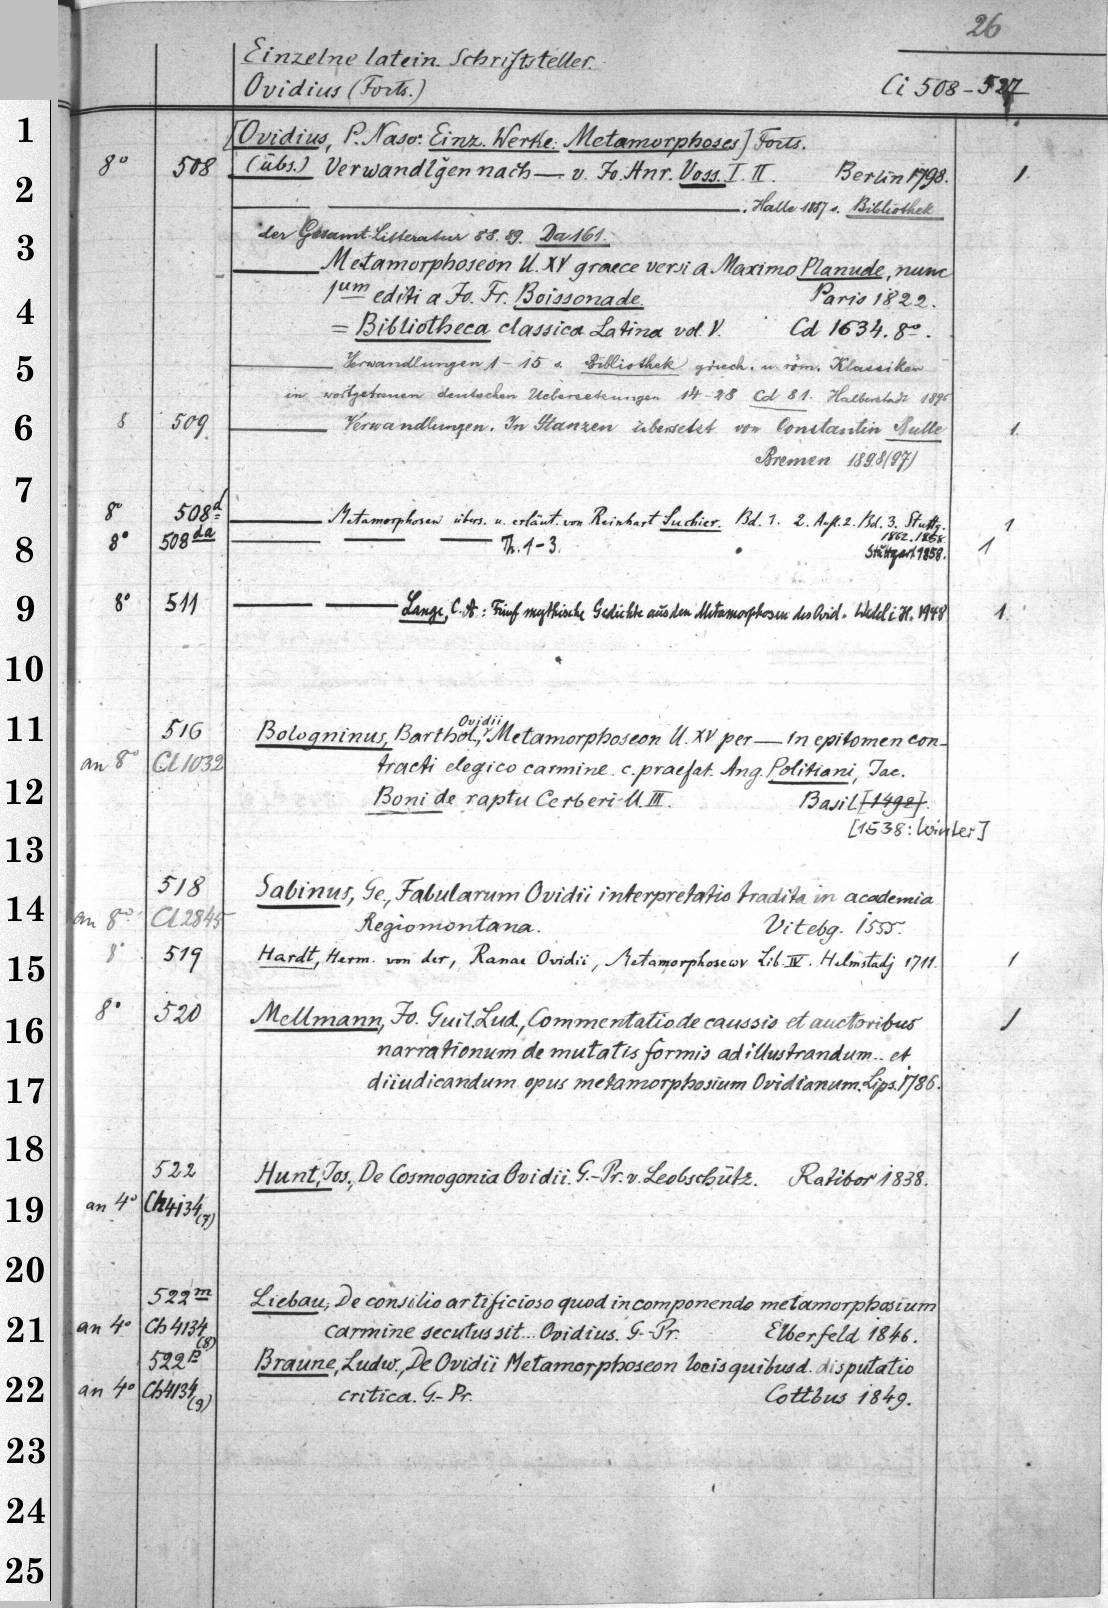 26
Einzelne latein. Schriftsteller.
Ovidius (Forts.) Ci 508-527
1
[Ovidius, P. Naso: Einz. Werke: Metamorphoses] Forts.
8° 508 (übs.) Verwandlg̃en nach — v. Jo. Hnr. Voss. I. II. Berlin 1798. 1
2
Halle 1887 s. Bibliothek
3
der Gesamt-Litteratur 88. 89. Da 161.
Metamorphoseon ll. XV graece versi a Maximo Planude, nunc
4
1um editi a Jo. Fr. Boissonade. Paris 1822.
= Bibliotheca classica Latina vol. V. Cd 1634. 8°.
5
Verwandlungen 1-15 s. Bibliothek griech. u. röm. Klassiken
in wortgetreuen deutschen Uebersetzungen 14-28 Cd 81. Halberstadt 1896
6
8 509. Verwandlungen. In Stanzen übersetzt von Constantin Bulle 1.
Bremen 1898(97)
7
8° 508d Metamorphosen übers. u. erläut. von Reinhart Suchier. Bd. 1. 2. Aufl. 2. Bd. 3. Stuttg. 1
1862. 1868.
8
8° 508da Th. 1-3. Stuttgart 1858. 1
9
8° 511 Lange, C. A.: Fünf mythische Gedichte aus den Metamorphosen des Ovid. 1948 1.
10
11
516 Bologninus, Barthol., Ovidii Metamorphoseon ll. XV per — in epitomen con-
an 8° Cl 1032 tracti elegico carmine. c. praefat. Ang. Politiani, Jac.
12
Boni de raptu Cerberi ll III. Basil [1492].
[1538: Winter]
13
14
518 Sabinus, Ge., Fabularum Ovidii interpretatio tradita in academia
an 8° Cl 2845 Regiomontana. Vitebg. 1555.
15
8° 519 Hardt, Herm. von der, Ranae Ovidii, Metamorphosewv Lib. IV. Helmstadj 1711. 1
16
8° 520 Mellmann, Jo. Guil. Lud., Commentatio de caussis et auctoribus 1
narrationum de mutatis formis ad illustrandum.. et
17
diiudicandum opus metamorphosium Ovidianum. Lips. 1786.
18
522 Hunt, Jos., De Cosmogonia Ovidii. G.-Pr. v. Leobschütz. Ratibor 1838.
19
an 4° Ch 4134(7)
20
522m Liebau, De consilio artificioso quod in componendo metamorphosium
21
an 4° Ch 4134(8) carmine secutus sit... Ovidius. G.-Pr. Elberfeld 1846.
522p Braune, Ludw., De Ovidii Metamorphoseon locis quibusd. disputatio
22
an 4° Ch 4134(9) critica. G.-Pr. Cottbus 1849.
23
24
25